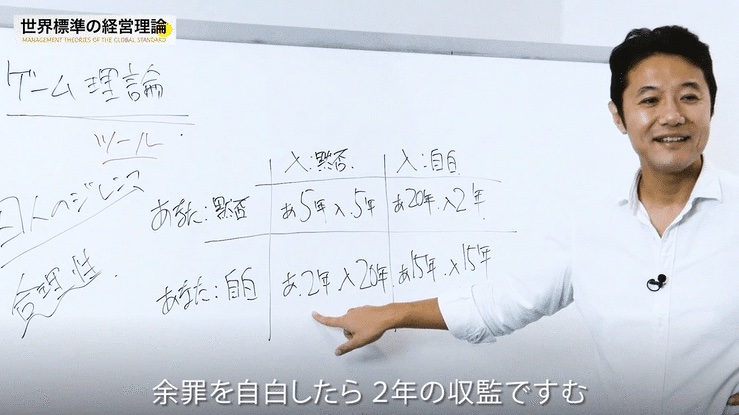 世界標準の経営理論
MANAGEMENT THEORIES OF THE GLOBAL STANDARD
ゲーム理論
ツール
囚人のジレンマ
合理性.
入:黙否. 入:自白
あなた:黙否 あ5年. 入.5年 あ20年.入2年.
あなた:自白 あ.2年 入20年 あ15年.入15年
余罪を自白したら 2年の収監ですむ